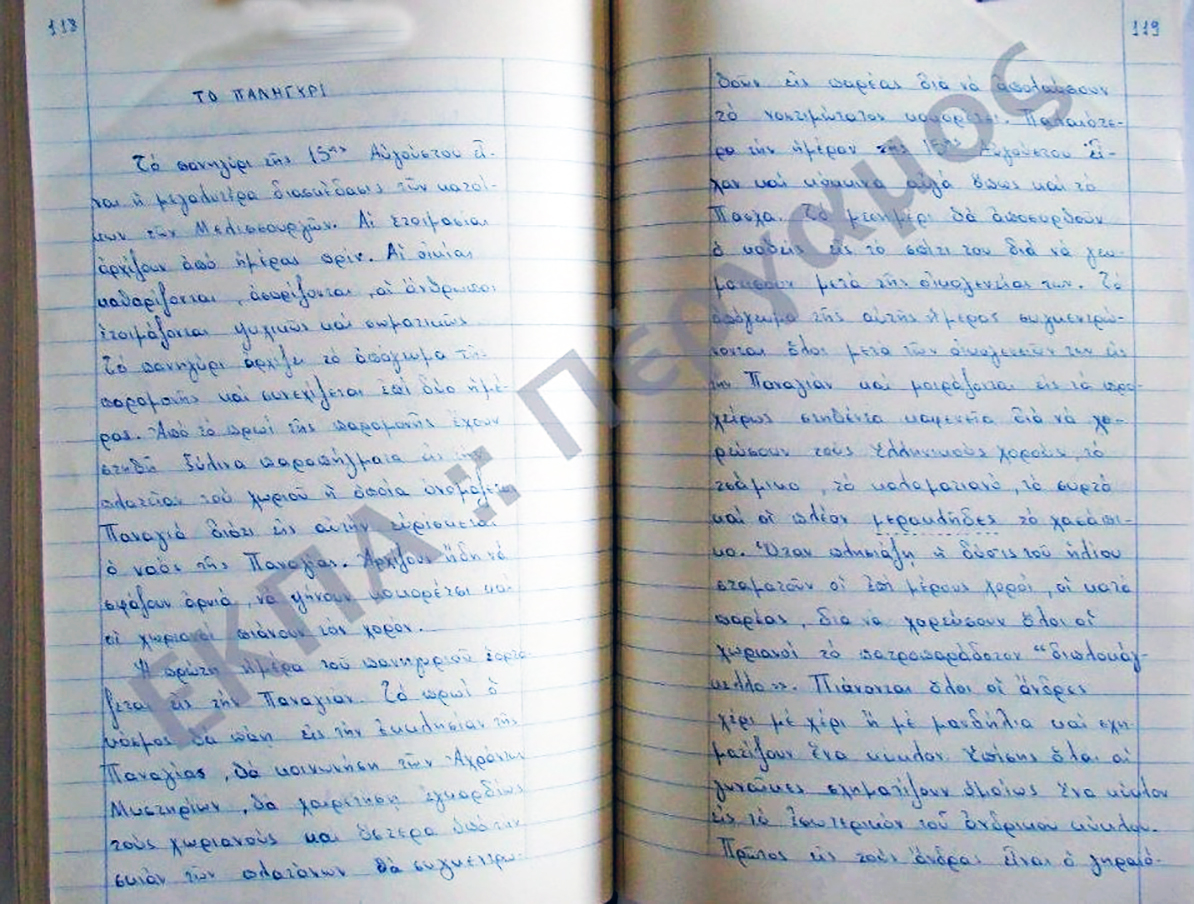 118
ΤΟ ΠΑΝΗΓΥΡΙ
Τό πανηγύρι τῆς 15ης Αὐγούστου εἶ-
ναι ἡ μεγαλυτέρα διασκέδασις τῶν κατοί-
κων τῶν Μελισσουργῶν. Αἱ ἑτοιμασίαι
ἀρχίζουν ἀπό ἡμέρας πρίν. Αἱ οἰκίαι
καθαρίζονται, ἀσπρίζονται, οἱ ἄνθρωποι
ἑτοιμάζονται ψυχικῶς καί σωματικῶς.
Τό πανηγύρι ἀρχίζει τό ἀπόγευμα τῆς
παραμονῆς καί συνεχίζεται ἐπί δύο ἡμέ-
ρας. Ἀπό τό πρωί τῆς παραμονῆς ἔχουν
στηθῆ ξύλινα παραπήγματα εἰς τήν
πλατεῖαν τοῦ χωριοῦ ἡ ὁποία ὀνομάζεται
Παναγιά διότι εἰς αὐτήν εὑρίσκεται
ὁ ναός τῆς Παναγίας. Ἀρχίζουν ἤδη νά
σφάζουν ἀρνιά, νά ψήνουν κοκορέτσι καί
οἱ χωριανοί πιάνουν τόν χορόν.
Ἡ πρώτη ἡμέρα τοῦ πανηγυριοῦ ἑορτά-
ζεται εἰς τήν Παναγίαν. Τό πρωί ὁ
κόσμος θά πάῃ εἰς τήν ἐκκλησίαν τῆς
Παναγίας, θά κοινωνήσῃ τῶν Ἀχράντων
Μυστηρίων, θά χαιρετήσῃ ἐγκαρδίως
τούς χωριανούς καί ὕστερα ὑπό τήν
σκιάν τῶν πλατάνων θά συγκεντρω-
119
θοῦν εἰς παρέας διά νά ἀπολαύσουν
τό νοστιμώτατον κοκορέτσι. Παλαιότε-
ρα τήν ἡμέραν τῆς 15ης Αὐγούστου εἶ-
χαν καί κόκκινα αὐγά ὅπως καί τό
Πάσχα. Τό μεσημέρι θά ἀποσυρθοῦν
ὁ καθείς εἰς τό σπίτι του διά νά γευ-
ματίσουν μετά τῆς οἰκογενείας των. Τό
ἀπόγευμα τῆς αὐτῆς ἡμέρας συγκεντρώ-
νονται ὅλοι μετά τῶν οἰκογενειῶν των εἰς
τήν Παναγίαν καί μοιράζονται εἰς τά προ-
χείρως στηθέντα καφενεῖα διά νά χο-
ρεύσουν τούς ἑλληνικούς χορούς, τό
τσάμικο, τό καλαματιανό, τό συρτό
καί οἱ πλέον μερακλῆδες τό χασάπι-
κο. Ὅταν πλησιάζῃ ἡ δύσις τοῦ ἡλίου
σταματοῦν οἱ ἐπί μέρους χοροί, οἱ κατά
παρέας, διά νά χορεύσουν ὅλοι οἱ
χωριανοί τό πατροπαράδοτον "διπλοκάγ-
κελλο». Πιάνονται ὅλοι οἱ ἄνδρες
χέρι μέ χέρι ἤ μέ μανδήλια καί σχη-
ματίζουν ἕνα κύκλον. Ἐπίσης ὅλαι αἱ
γυναῖκες σχηματίζουν ὁμοίως ἕνα κύκλον
εἰς τό ἐσωτερικόν τοῦ ἀνδρικοῦ κύκλου.
Πρῶτος εἰς τούς ἄνδρας εἶναι ὁ γηραιό-
ΕΚΠΑ :: Πέργαμος